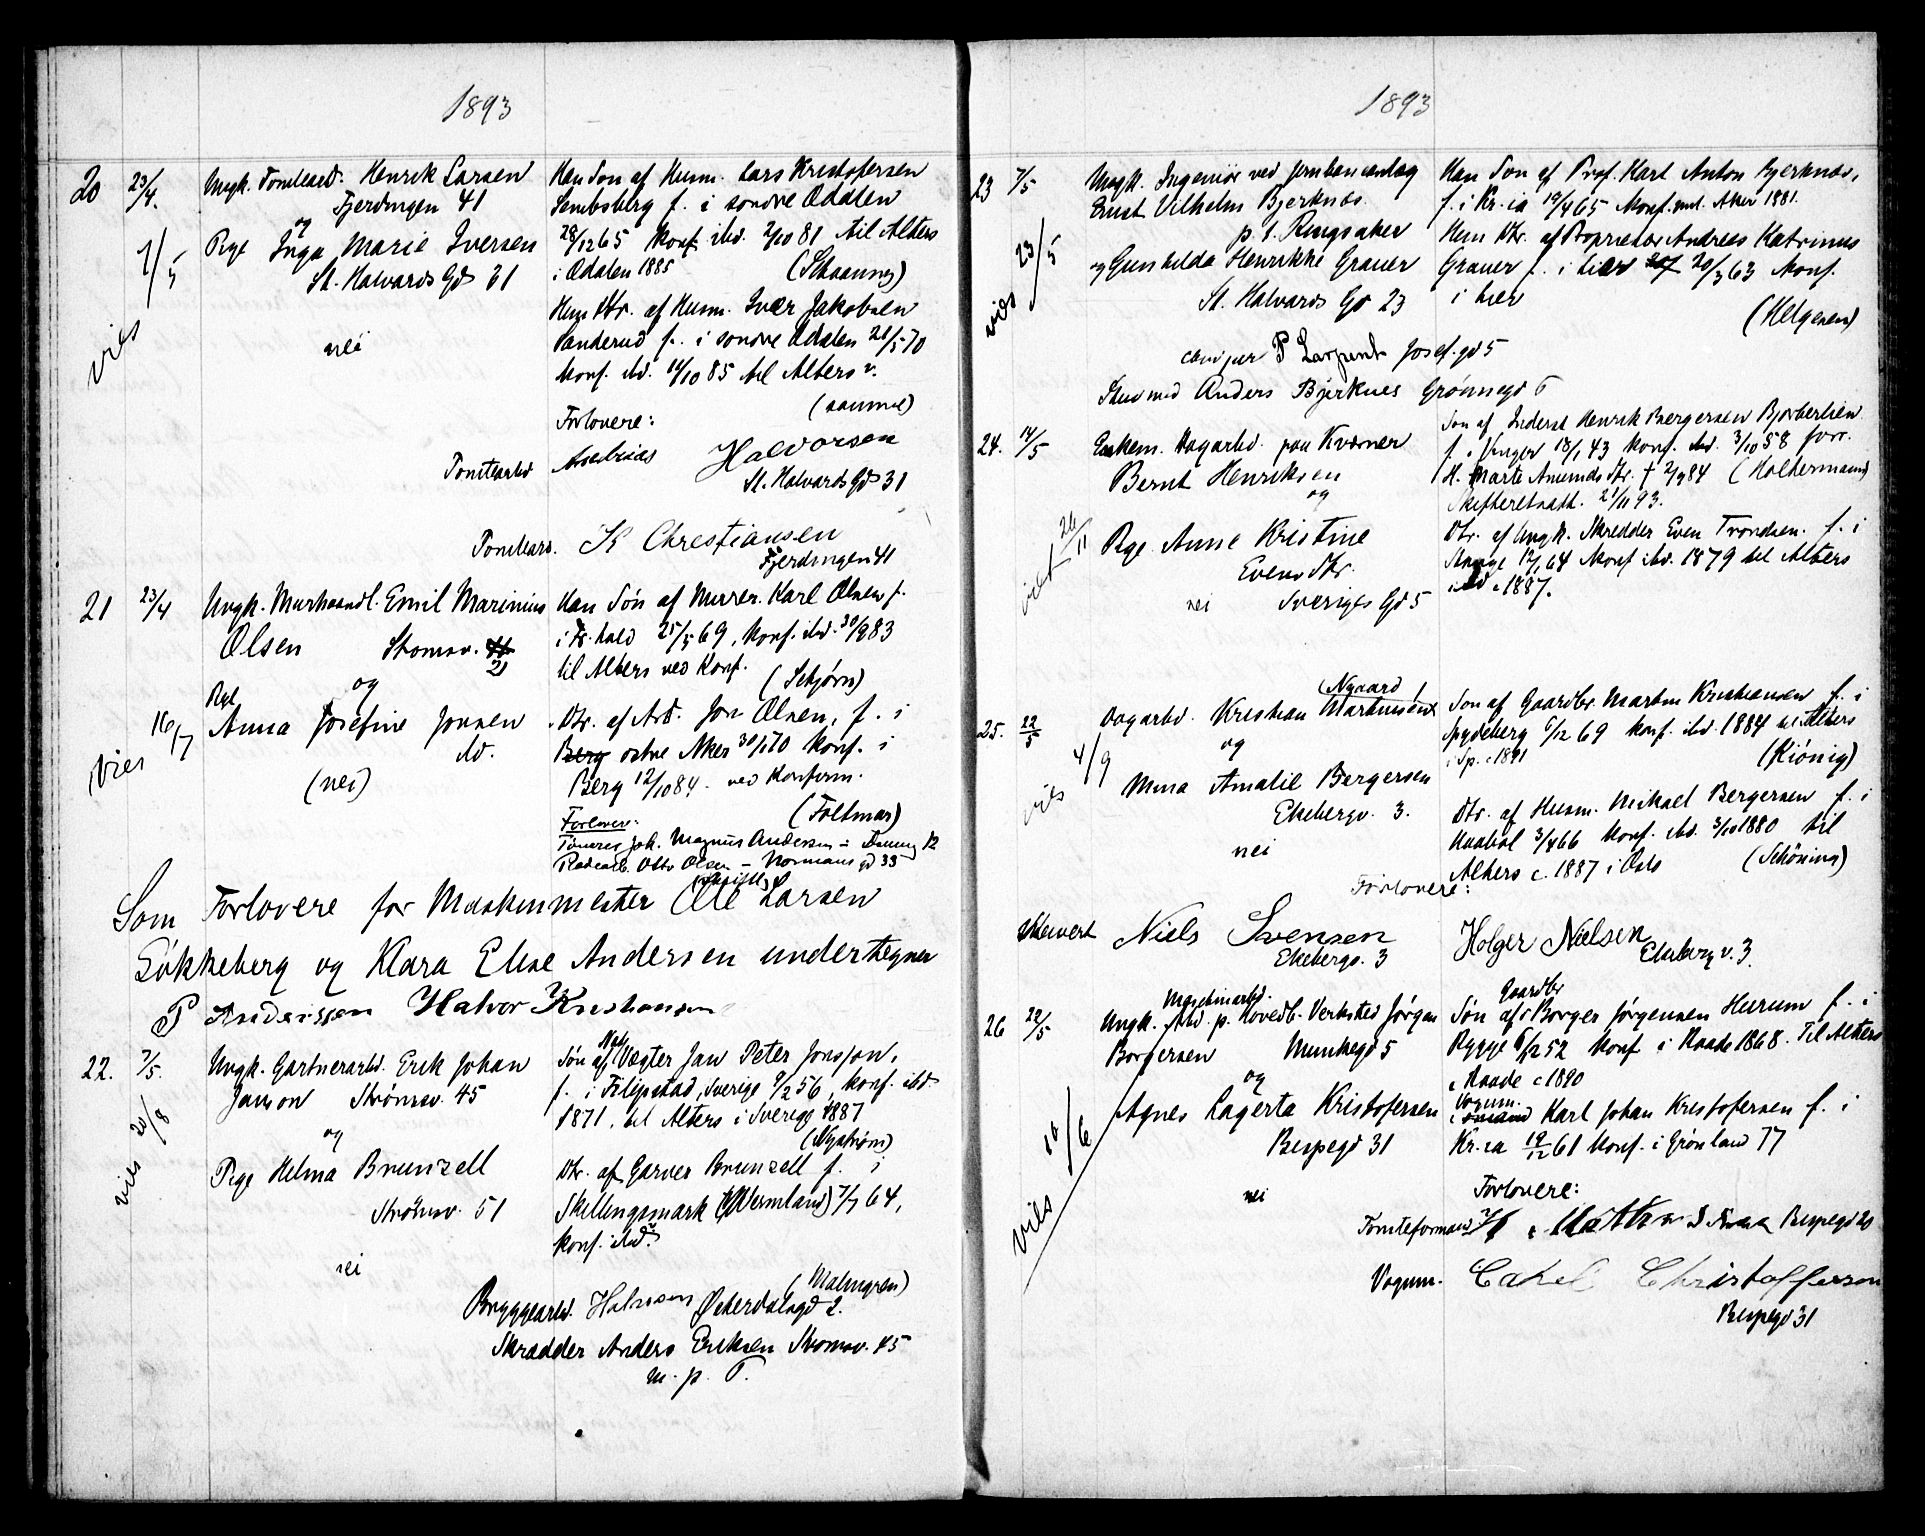 1893
20 23/4. Ungk. Tomtearb. Henrik Larsen
Fjerdingen 41
og
Pige Inga Marie Iversen
St. Halvards Gd 31
nei
viet 7/5
Han Søn af Husm. Lars Kristofersen
Sembsberg f. i søndre Odalen
28/12 65 Konf. ibd. 2/10 81 til Alters
i Odalen 1885 (Skaanney)
Hun Dtr. af Husm. Iver Jakobsen
Sanderud f. i søndre Odalen 21/5 70
Konf. ibd. 14/10 85 til Alters v.
(samme)
Forlovere:
Tomtearbd Halvorsen
St. Halvards Gd 31
Tomtearb. K Christiansen
Fjerdingen 41
21 23/4 Ungk. Murhaandl. Emil Marinius
Olsen Strømsv. 21
og
Pige
Anna Josefine Jonsen
ibd.
(nei)
viet 16/7
Han Søn af Murer Karl Olsen f.
i Fr.hald 25/5 69, Konf. ibd. 30/9 83
til Alters ved Konf.
(Schjørn)
Dtr. af Arb. Jon Olsen, f. i
Berg østre Aker 30/1 70 Konf. i
Berg 12/10 84 ved Konfirm.
(Foltmar)
Forlovere:
Tømrer Joh. Magnus Andersen
Otto Olsen - Normans gd 33
Som Forlovere for Maskinmester Ole Larsen
Søkkeberg og Klara Elise Andersen undertegner
P Anderssen Halvor Kristiansen
22. 7/5. Ungk. Gartnerarbd. Erik Johan
Janson Strømsv. 45
og
Pige Helma Brunzell
Strömsv. 51
nei
viet 20/8
Søn af Vægter Jan Peter Jonsson,
f. i Filipstad, Sverige 9/2 56, Konf. ibd.
1871, til Alters i Sverige 1887
(Nyström)
Dtr. af Garver Brunzell f. i
Skillingsmark (Wermland) 7/7 64,
Konf. ibd.
(Malmgren)
Bryggearbd. Hansen Østerdalsgd 2.
Skrædder Anders Eriksen Strømsv. 45
m. p. T.
1893
23 7/5 Ungk. Ingeniör ved Jernbaneanlæg
Ernst Vilhelm Bjerknæs
p. t. Ringsaker
og Gunhilda Henrikke Grauer
St. Halvards Gd 23
viet 23/5
Han Søn af Prof. Karl Anton Bjerknæs,
f. i Kr.ia 19/4 65 Konf. Aker 1881.
Hun Dtr. af Proprietær Andreas Katrinus
Grauer f. i Lier 20/3 63 Konf.
i Lier
(Helgesen)
P Larpent Josef. gd 5
Stud med Anders Bjerknes Grønnegd 5
24. 14/5 Enkem. Dagarbd. paa Kværner
Bernt Henriksen
og
Pige Anne Kristine
Evens Dtr.
nei Sveriges Gd 5
viet 26/11
Søn af Inderst Henrik Børgersen Bjørberlien
f. i Vinger 18/1 43 Konf. ibd. 3/10 58 forr.
H. Marte Amunds Dtr. † 2/9 84 (Holtermann)
Skifteretsatt. 21/11 93.
Dtr. af Ungk. Skredder Even Trondsen. f. i
Stange 12/1 64 Konf ibd. 1879 til Alters
ibd c. 1887.
25. 22/5 Dagarbd. Kristian Martinsen
(Nygaard)
og
Mina Amalie Bergersen
Ekebergv. 3.
nei
viet 4/9
Søn af Gaardbr. Martin Kristiansen f. i
Spydeberg 6/12 69 Konf. ibd. 1884 til Alters
i Sp. c 1891
(Kiönig)
Dtr. af Husm. Mikael Bergersen f. i
Haabøl 3/4 66 Konf. ibd. 3/10 1880 til
Alters c. 1887 i Oslo (Schöning)
Forlovere:
Niels Svensen
Ekebergv. 3
Holger Nielsen
Ekebergv. 3.
26 22/5 Ungk. Maskinarbd. p. Hovedb. Verksted Jørgen
Borgersen Munkegd 5
og
Agnes Lagerta Kristofersen
Bispegd 31
nei
viet 16/6
Søn af Gaardbr Borger Jørgensen Huum f. i
Rygge 6/12 52 Konf i Raade 1868. Til Alters
i Raade c 1890
Vognm. Karl Johan Kristofersen f. i
Kr.ia 19/12 61 Konf. i Grønland 77
Forlovere:
Tomteformand Bispegd 20
Vognm. Carel Christofferson
Bispegd 31